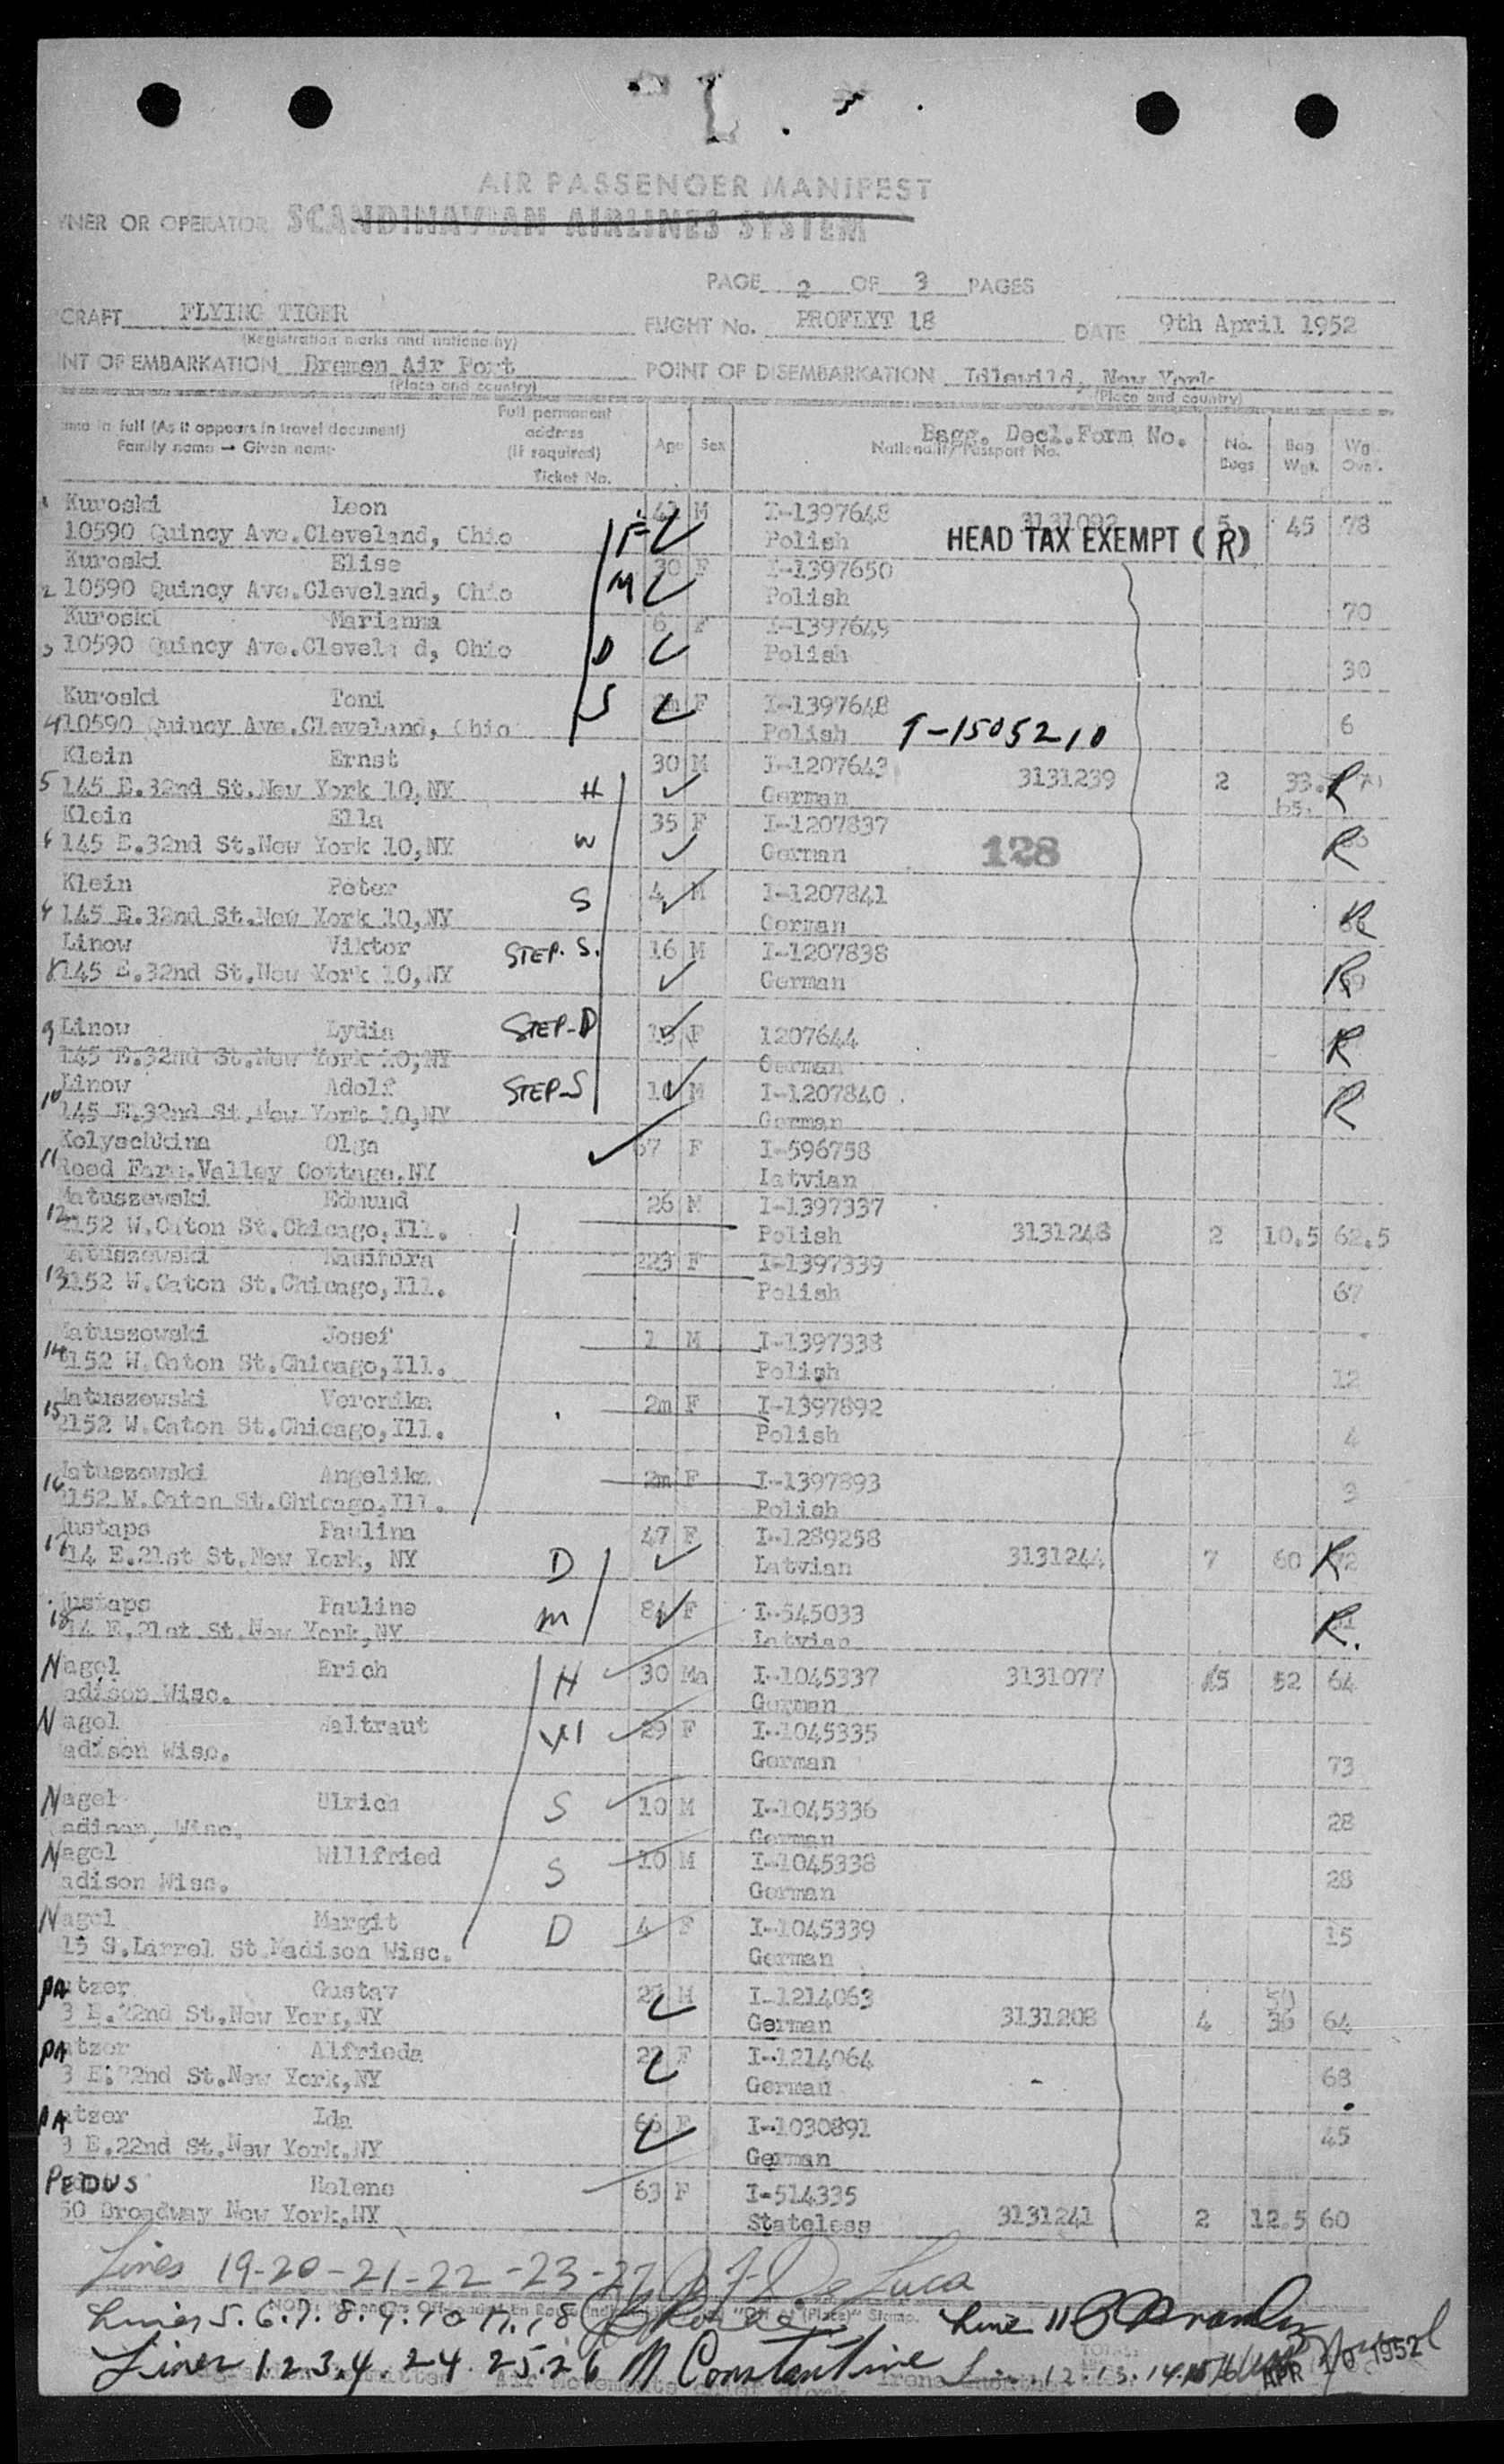 AIR PASSENGER MANIFEST
OWNER OR OPERATOR SCANDINAVIAN AIRLINES SYSTEM
PAGE 2 OF 3 PAGES
CRAFT FLYING TIGER FLIGHT No. PROFLYT 18 DATE 9th April 1952
(Registration marks and nationality)
NT OF EMBARKATION Bremen Air Port POINT OF DISEMBARKATION Idlewild, New York
(Place and country) (Place and country)
ame in full (As it appears in travel document) Full permanent address (If required) Age Sex Bagg. Decl. Form No. No. Bag Wg.
Family name — Given name Ticket No. Nationality Passport No. Bags Wgt.
1 Kuroski Leon M I-1397648 3131092 5 45 78
10590 Quincy Ave.Cleveland, Ohio F Polish HEAD TAX EXEMPT (R)
Kuroski Elise 30 F I-1397650
2 10590 Quincy Ave.Cleveland, Ohio M Polish 70
Kuroski Marianna 6 F I-1397649
3 10590 Quincy Ave.Clevela d, Ohio D Polish 30
Kuroski Toni S F I-1397648
4 10590 Quincy Ave.Cleveland, Ohio Polish T-1505210 6
Klein Ernst 30 M I-1207643 3131239 2 33. R
5 145 E.32nd St.New York 10,NY H German
Klein Ella 35 F I-1207837
6 145 E.32nd St.New York 10,NY W German 128 R
Klein Peter S 4 M I-1207841
145 E.32nd St.New York 10,NY German R
Linow Viktor STEP. S. 16 M I-1207838
8 145 E.32nd St.New York 10,NY German R
9 Linow Lydia STEP-D F 1207644 R
145 E.32nd St.New York 10,NY German
Linow Adolf STEP-S M I-1207840
10 145 E.32nd St.New York 10,NY German R
Kolyschkina Olga 67 F I-596758
11 Reed Farm.Valley Cottage.NY Latvian
Matuszewski Edmund 26 M I-1397337
12 2152 W.Caton St.Chicago,Ill. Polish 3131248 2 10.5 62.5
Matuszewski Kasimira 223 F I-1397339
13 2152 W.Caton St.Chicago,Ill. Polish 67
Matuszowski Josef 1 M I-1397338
14 2152 W.Caton St.Chicago,Ill. Polish 12
Matuszewski Veronika 2m F I-1397892
15 2152 W.Caton St.Chicago,Ill. Polish 4
Matuszowski Angelika 2m F I-1397893
16 2152 W.Caton St.Chicago,Ill. Polish 3
Mustaps Paulina 47 F I-1289258
17 14 E.21st St.New York, NY D Latvian 3131244 7 60 72 R
Mustaps Pauline F I-545033
18 14 E.21st St.New York,NY m Latvian R.
Nagel Erich H 30 Ma I-1045337 3131077 15 52 64
adison Wisc. German
Nagel Waltraut W 29 F I-1045335
adison Wisc. German 73
Nagel Ulrich S 10 M I-1045336
adison, Wisc. German 28
Nagel Willfried S 10 M I-1045338
adison Wisc. German 28
Nagel Margit D 4 F I-1045339
15 S.Larrel St.Madison Wisc. German 15
PAtzer Gustav M I-1214063 50
3 E.22nd St.New York,NY German 3131208 4 36 64
PAtzer Alfrieda F I-1214064
3 E.22nd St.New York,NY German 68
PAtzer Ida 66 F I-1030891
3 E.22nd St.New York,NY German 45
PEDUS Helene 63 F I-514335
50 Broadway New York,NY Stateless 3131241 2 12.5 60
Lines 19-20-21-22-23-27 De Luca
Lines 5.6.7.8.9.10 17.18 Line 11
Lines 1 2 3.4. 24. 25.26 M Constantine 12.13.14.15 16 APR 10 1952